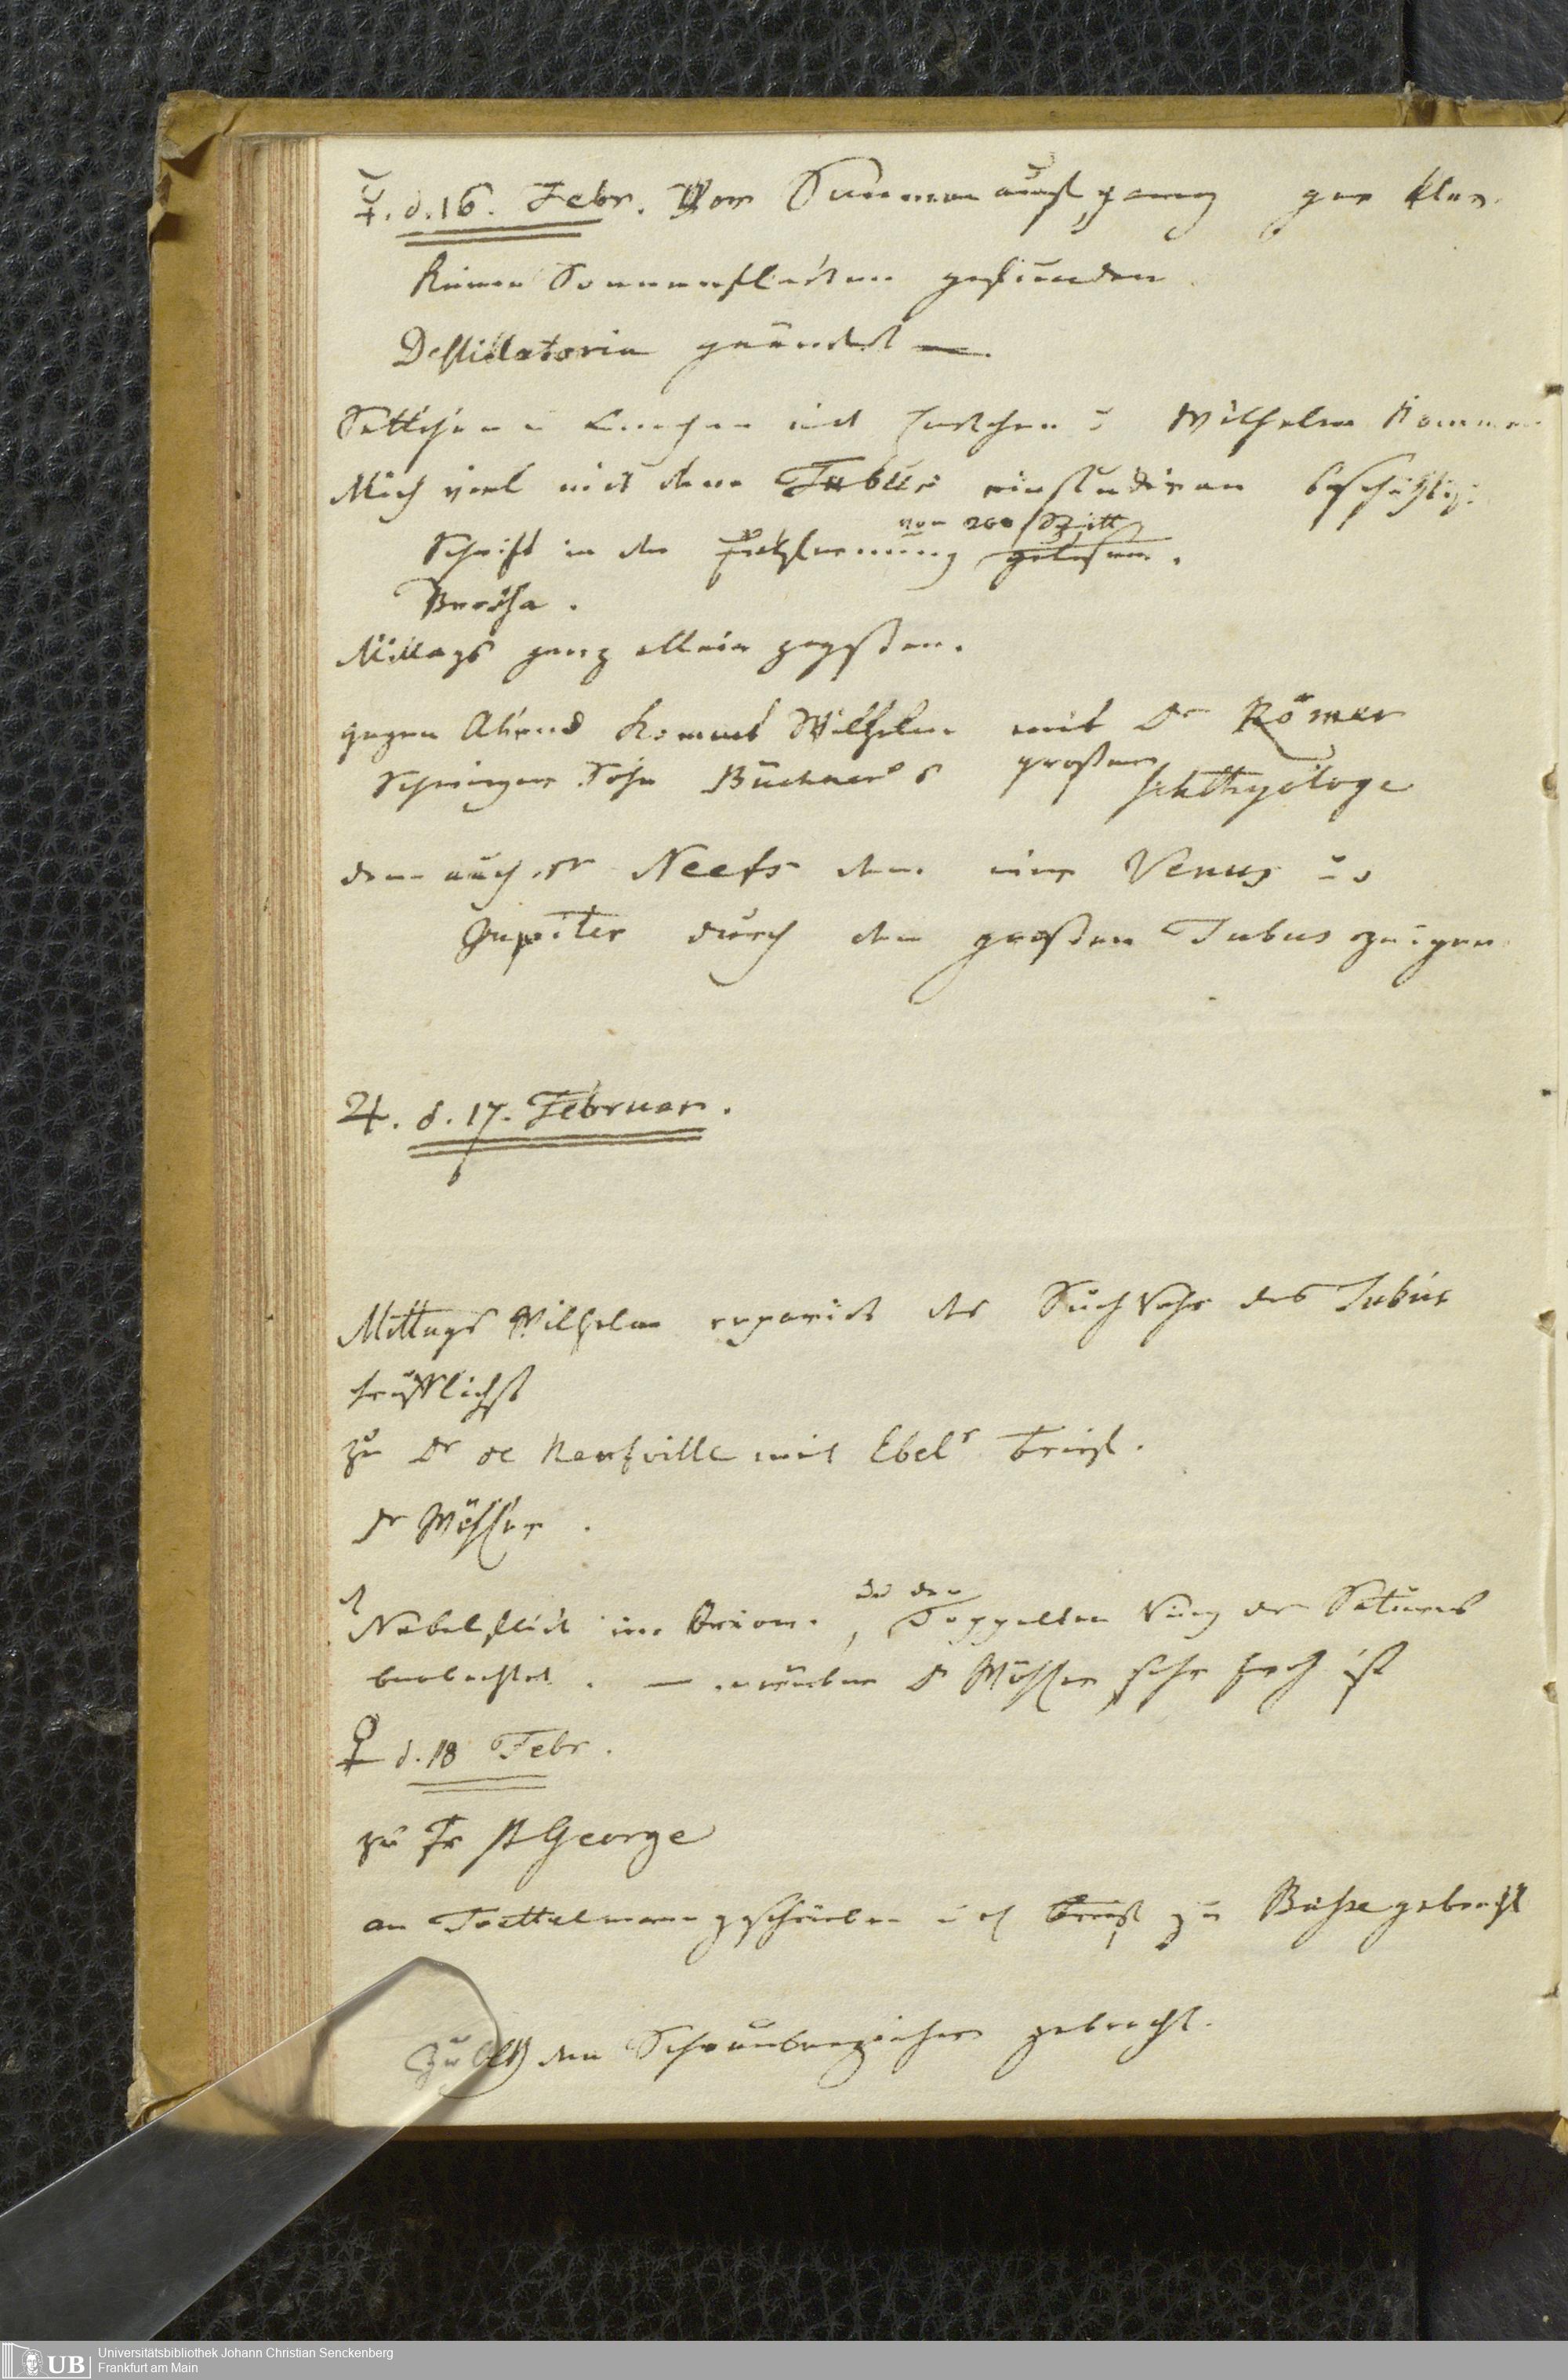 ☿. d. 16. Febr. Vor Sonnenaufgang gar klar.
Keinen Sonnenflecken gefunden.
Destillatoria geändert —.
Settchen u Lenchen mit Hartchen u Wilhelm kommen
Mich viel mit dem Tubus einstudieren beschäftigt
Schrift in der Entfernung von 200 Schritt gelesen.
Mittags ganz allein gegessen.
gegen Abend kommt Wilhelm mit Dr Römer
Schwieger Sohn Büchner's großer Ichthyologe
dann auch Dr Neefs denen wir Venus u
Jupiter durch den großen Tubus zeigen.
♃. d. 17. Februar.
Mittags Wilhelm reparirt das Suchrohr des Tubus
trefflichst
zu Dr de Neufville mit Ebels Brief.
Dr Mössler.
d Nebelfleck im Orion, und den Doppelten Ring des Saturns
beobachtet. — worüber Dr Mössler sehr froh ist
♀ d. 18 Febr.
zu Fr St George
an Trettelmann geschrieben u d Brief zu gebracht
Zu den Schraubenzieher gebracht.
UB
Universitätsbibliothek Johann Christian Senckenberg
Frankfurt am Main